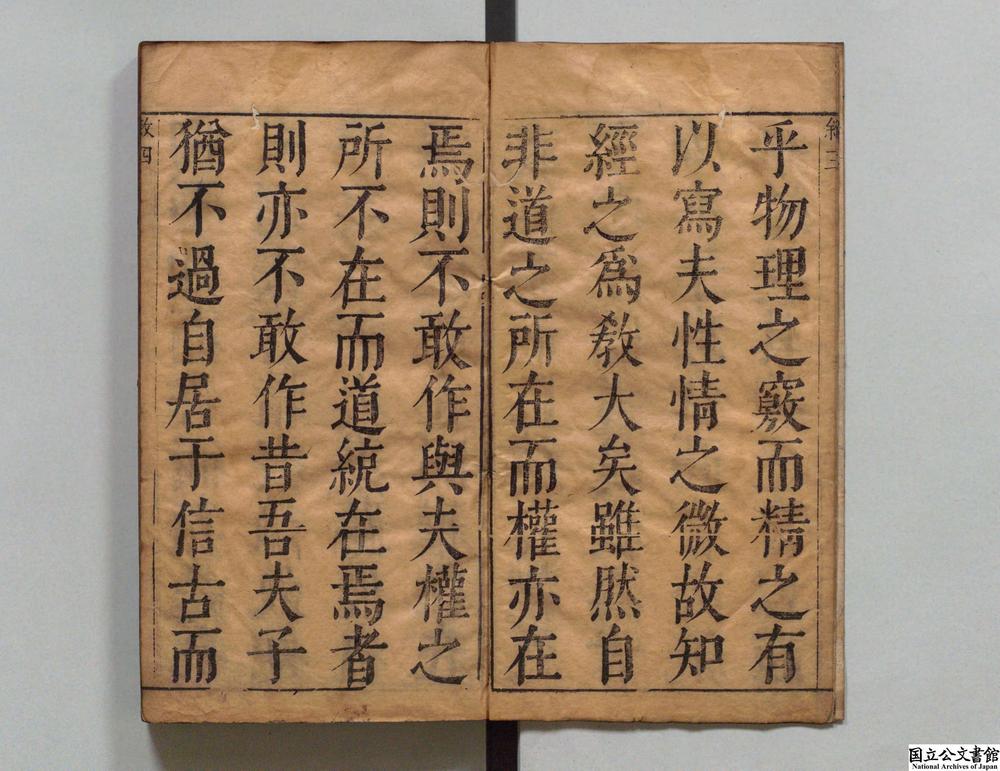 乎物理之竅而精之有
以寫夫性情之微故知
經之為教大矣雖然自
非道之所在而權亦在
焉則不敢作與夫權之
所不在而道統在焉者
則亦不敢作昔吾夫子
猶不過自居于信古而
国立公文書館
National Archives of Japan